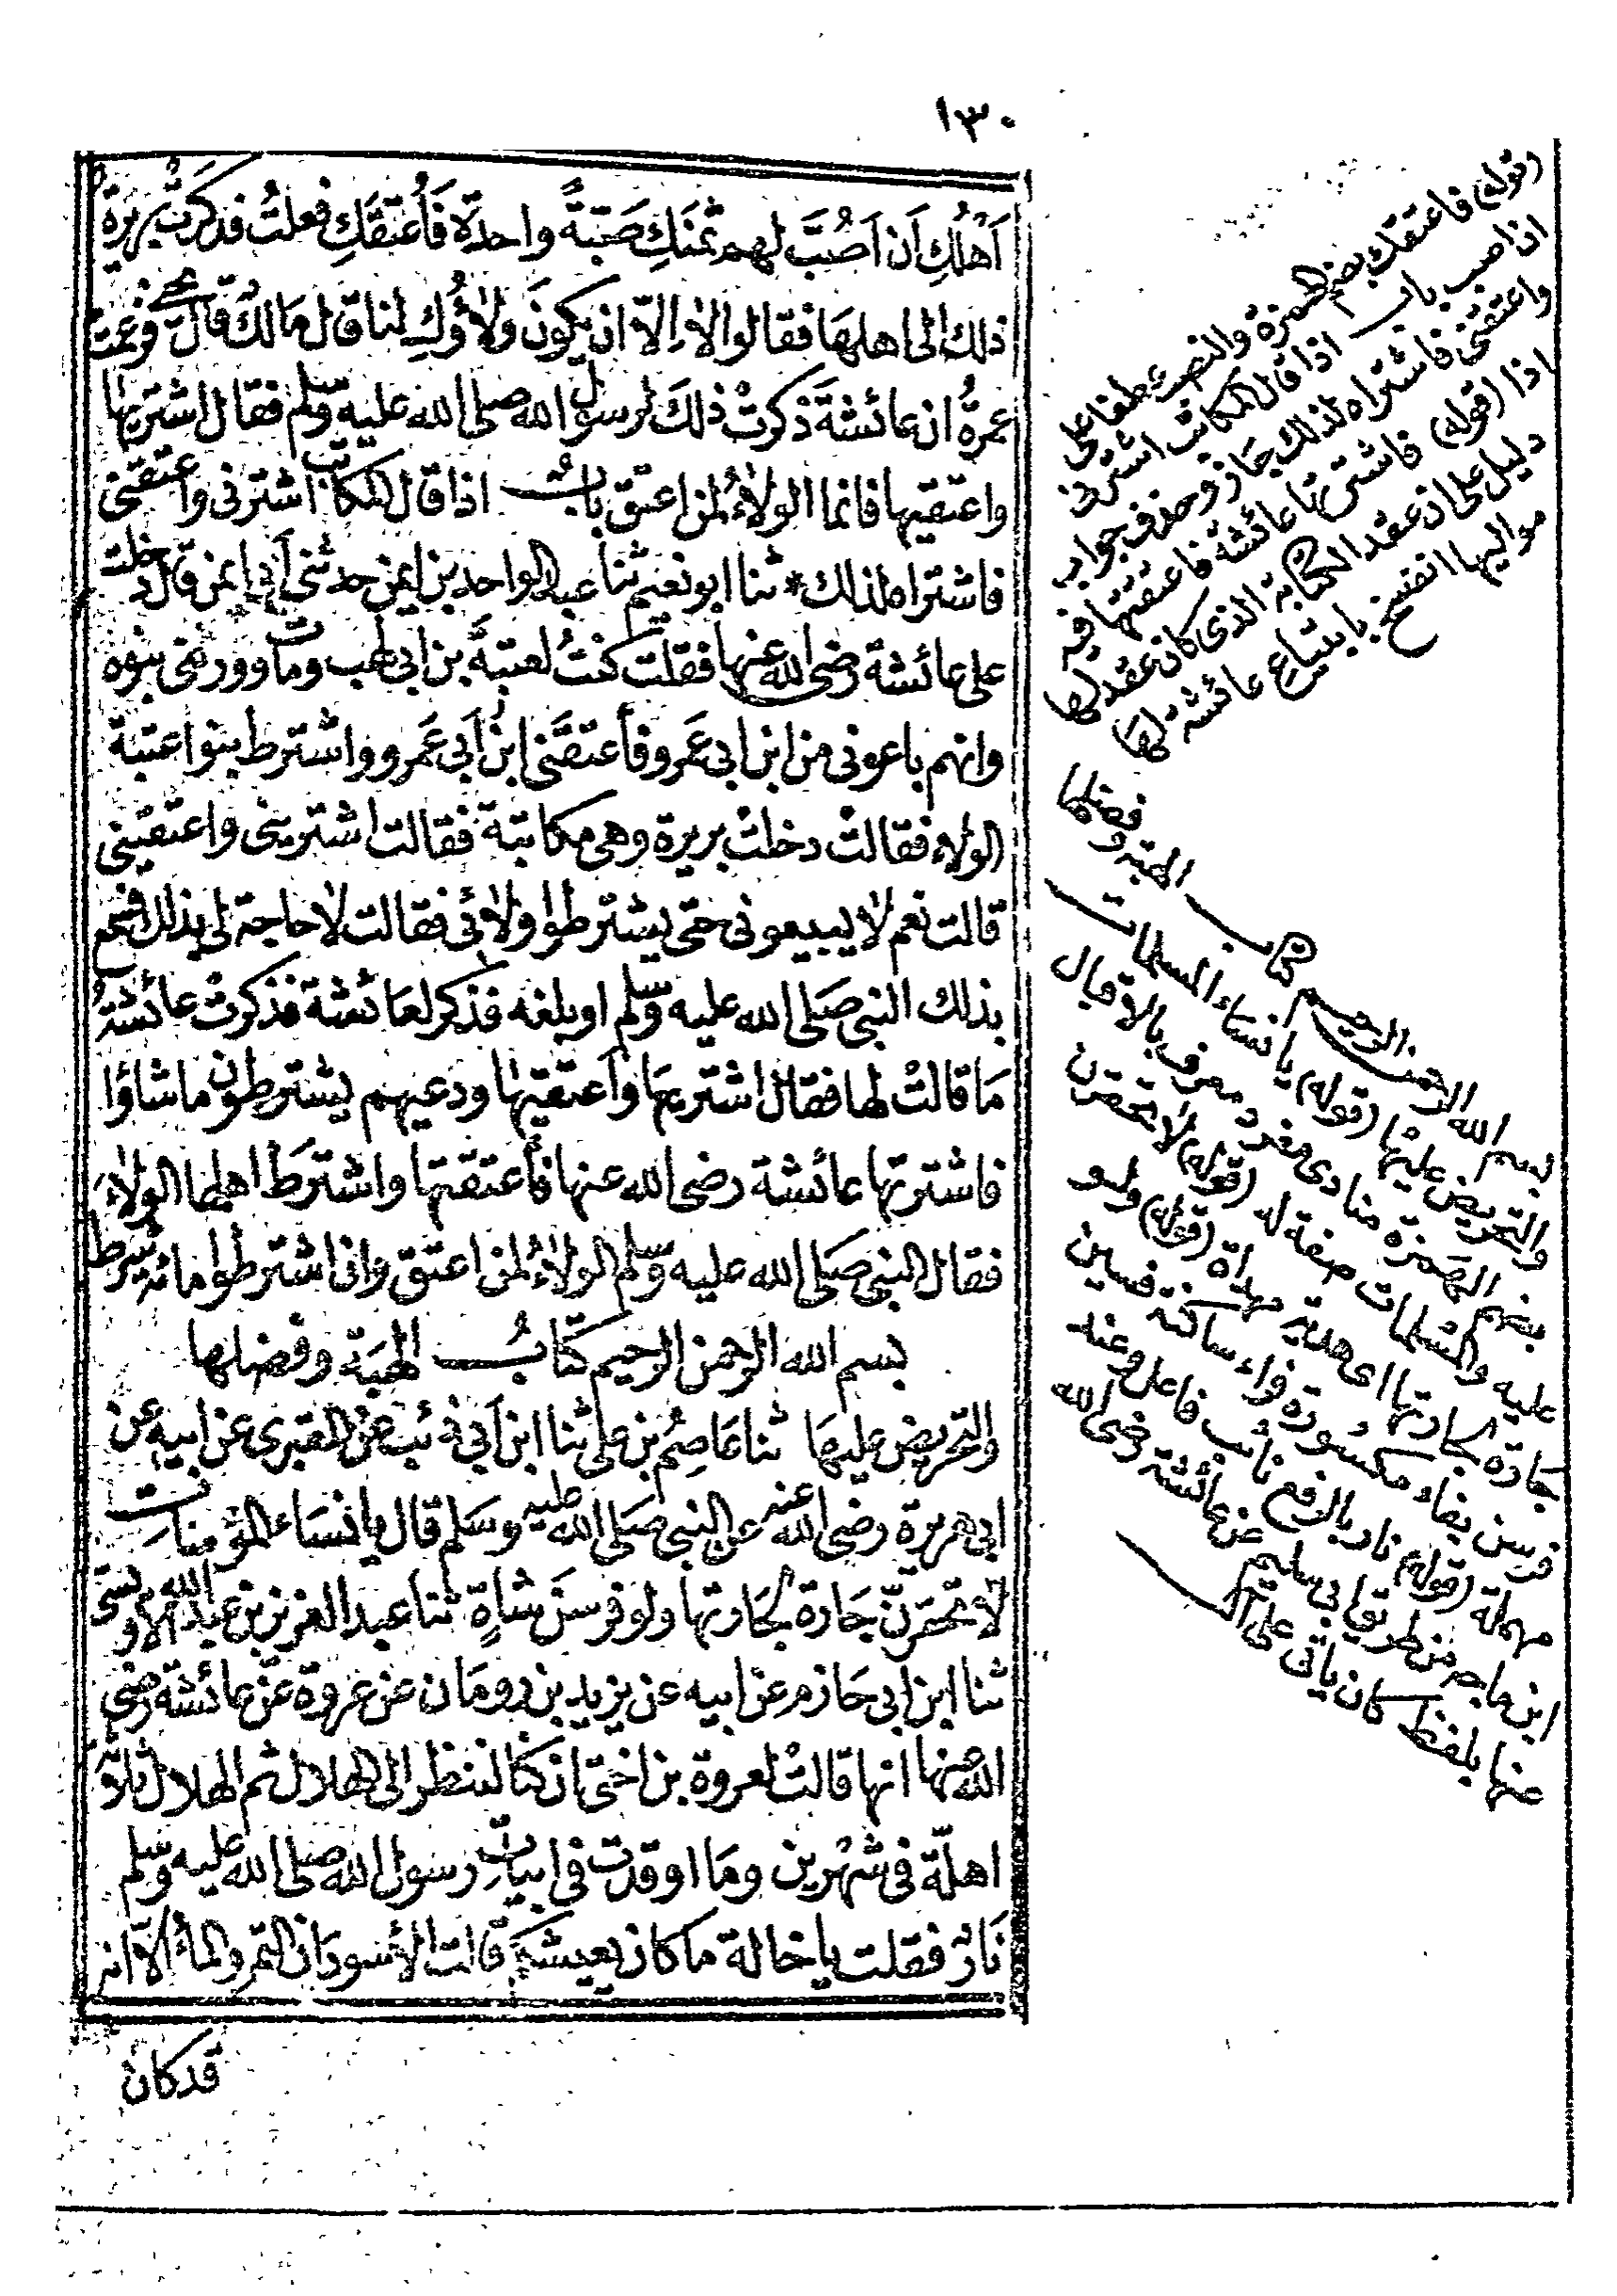 ١٣٠
اَهْلُكِ اَن اَصُبَّ لهم ثمَنَكِ صَبَّةً واحدةً فَأُعتقَكِ فعلتُ فذكرَتْ بريرةُ
ذلك الى اهلها فقالوا لا اِلاّ ان يكونَ ولاؤُكِ لنا قال مَالكٌ قال يحيى فزعمت
عمرةُ ان عائشةَ ذكرتْ ذلكَ لرسول الله صلى الله عليه وسلم فقال اشتريها
واعتقيها فانما الولاءُ لمن اعتق بابٌ اذا قال المكاتب اشترنى واعتقنى
فاشتراه لذلك * ثنا ابو نعيم ثنا عبد الواحد بن ايمن حدثنى اَبى ايمن قال دخلت
على عائشة رضى الله عنها فقلت كنتُ لعتبةَ بن ابى لهب ومات وورثنى بنوه
وانهم باعونى من ابن ابى عَمرو فأعتقَنى ابن اَبى عَمرو واشترط بنوا عتبة
الولاء فقالت دخلتْ بريرة وهى مكاتبة فقالت اشترينى واعتقينى
قالت نعم لا يبيعونى حتى يشترطوا ولائى فقالت لا حاجة لى بذلك فسمع
بذلك النبى صَلى الله عليه وسلم او بلغه فذكر لعَائشة فذكرتْ عائشةُ
مَا قالتْ لها فقال اشتريهَا واَعتقيها ودعيهم يشترطون ما شاؤا
فاشترتها عائشة رضى الله عنها فأعتقتها واشترطَ اهلها الولاءَ
فقال النبى صَلى الله عليه وسلم الولاءُ لمن اعتق وان اشترطوا مائة شرط
بسم الله الرحمن الرحيم كتابُ الهبَة وفضلها
والتحريض عليهَا ثنا عَاصِمُ بن على ثنا ابن اَبى ذئب عن المقبرى عن ابيه عن
ابى هريرة رضى الله عنه عن النبى صَلى الله عليه وسَلم قال يا نسَاء المؤمنات
لا تحقرنّ جَارة لجَارتها ولو فرسنَ شاةٍ ثنا عبد العزيز بن عبد الله الاويسى
ثنا ابن ابى حَازم عن ابيه عن يزيد بن رومَان عن عروة عن عائشة رضى
الله عنها انها قالتْ لعروة بن اختى ان كنا لننظر الى الهلال ثم الهلال ثلاثةَ
اهلّة فى شهرين ومَا اوقدت فى ابيات رسول الله صلى الله عليه وسلم
نَارٌ فقلت يا خالة ما كان يعيشكم قالت الأسودان التمر والماء الا انه
قد كان
(قوله) فاعتقك بضم الهمزة والنصب عطفا على
ان اصب باب اذا قال المكاتب اشترنى
واعتقنى فاشتراه لذلك جاز وحذف جواب
اذا (قوله) فاشترتها عائشة فاعتقتها فيه
دليل على ان عقد الكتابة الذى كان عقد لها
مواليها انفسخ بابتياع عائشة لها
بسم الله الرحمن الرحيم كتاب الهبة وفضلها
والتحريض عليها (قوله) يا نساء المسلمات
بضم الهمزة منادى مفرد معرف بالاقبال
عليه والمسلمات صفة له (قوله) لا تحقرن
جارة لجارتها اى هدية مهداة (قوله) ولو
فرسن بفاء مكسورة فراء ساكنة فسين
مهملة (قوله) نار بالرفع نائب فاعل وعند
ابن ماجه من طريق ابى سليم عن عائشة رضى الله
عنها بلفظ كان يأتى على آل